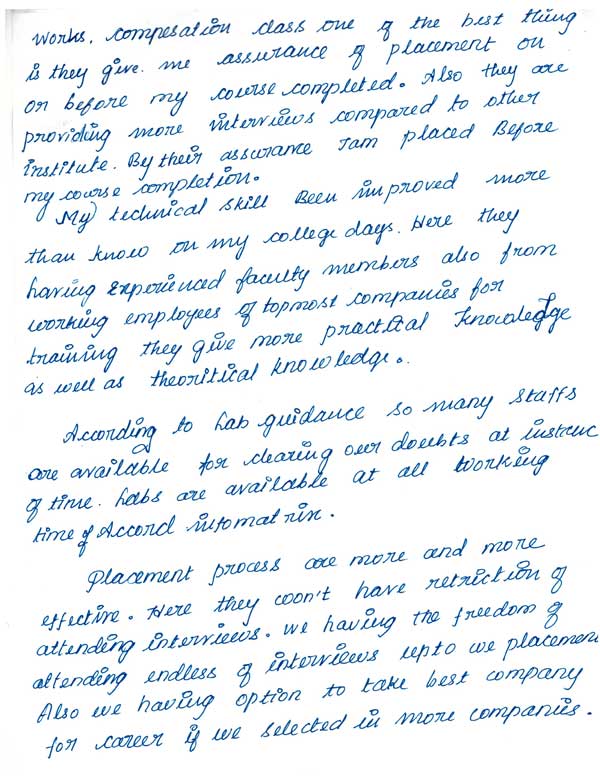 works. compesation class one of the best thing
is they give me assurance of placement on
or before my course completed. Also they are
providing more interviews compared to other
institute. By their assurance I am placed Before
my course completion.
My technical skill Been improved more
than know on my college days. Here they
having Experienced faculty members also from
working employees of topmost companies for
training they give more practical Knowledge
as well as theoritical knowledge.
According to Lab guidance so many staffs
are available for clearing our doubts at instunc
of time. Labs are available at all working
time of Accord infomatrix.
Placement process are more and more
effective. Here they won't have retriction of
attending interviews. we having the freedom of
attending endless of interviews upto we placement
Also we having option to take best company
for career if we selected in more companies.